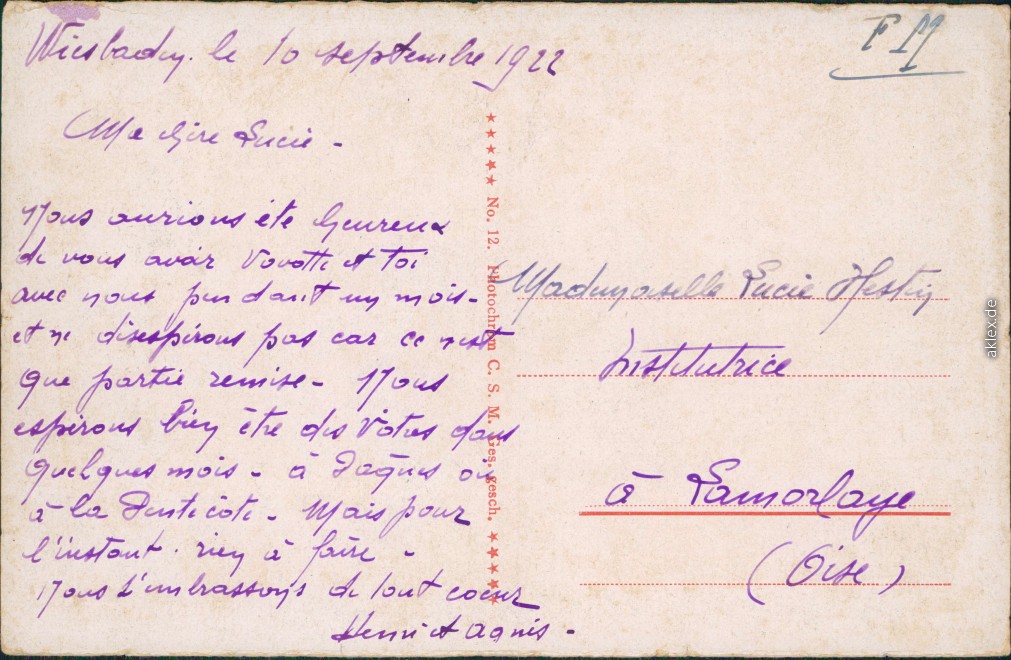 Wiesbaden. le 10 septembre 1922
F M
Ma chère Lucie -
Nous aurions été heureux
de vous avoir Vovotte et toi
avec nous pendant un mois -
et ne désespérons pas car ce n'est
que partie remise - Nous
espérons bien être des Vôtres dans
quelques mois - à Pâques ou
à la Pentecôte - Mais pour
l'instant. rien à faire -
Nous t'embrassons de tout coeur
Henri et Agnès -
★★★★★ No. 12. Photochrom C. S. M. Ges. gesch. ★★★★★
Mademoiselle Lucie
Institutrice
à Lamorlaye
(Oise)
aklex.de